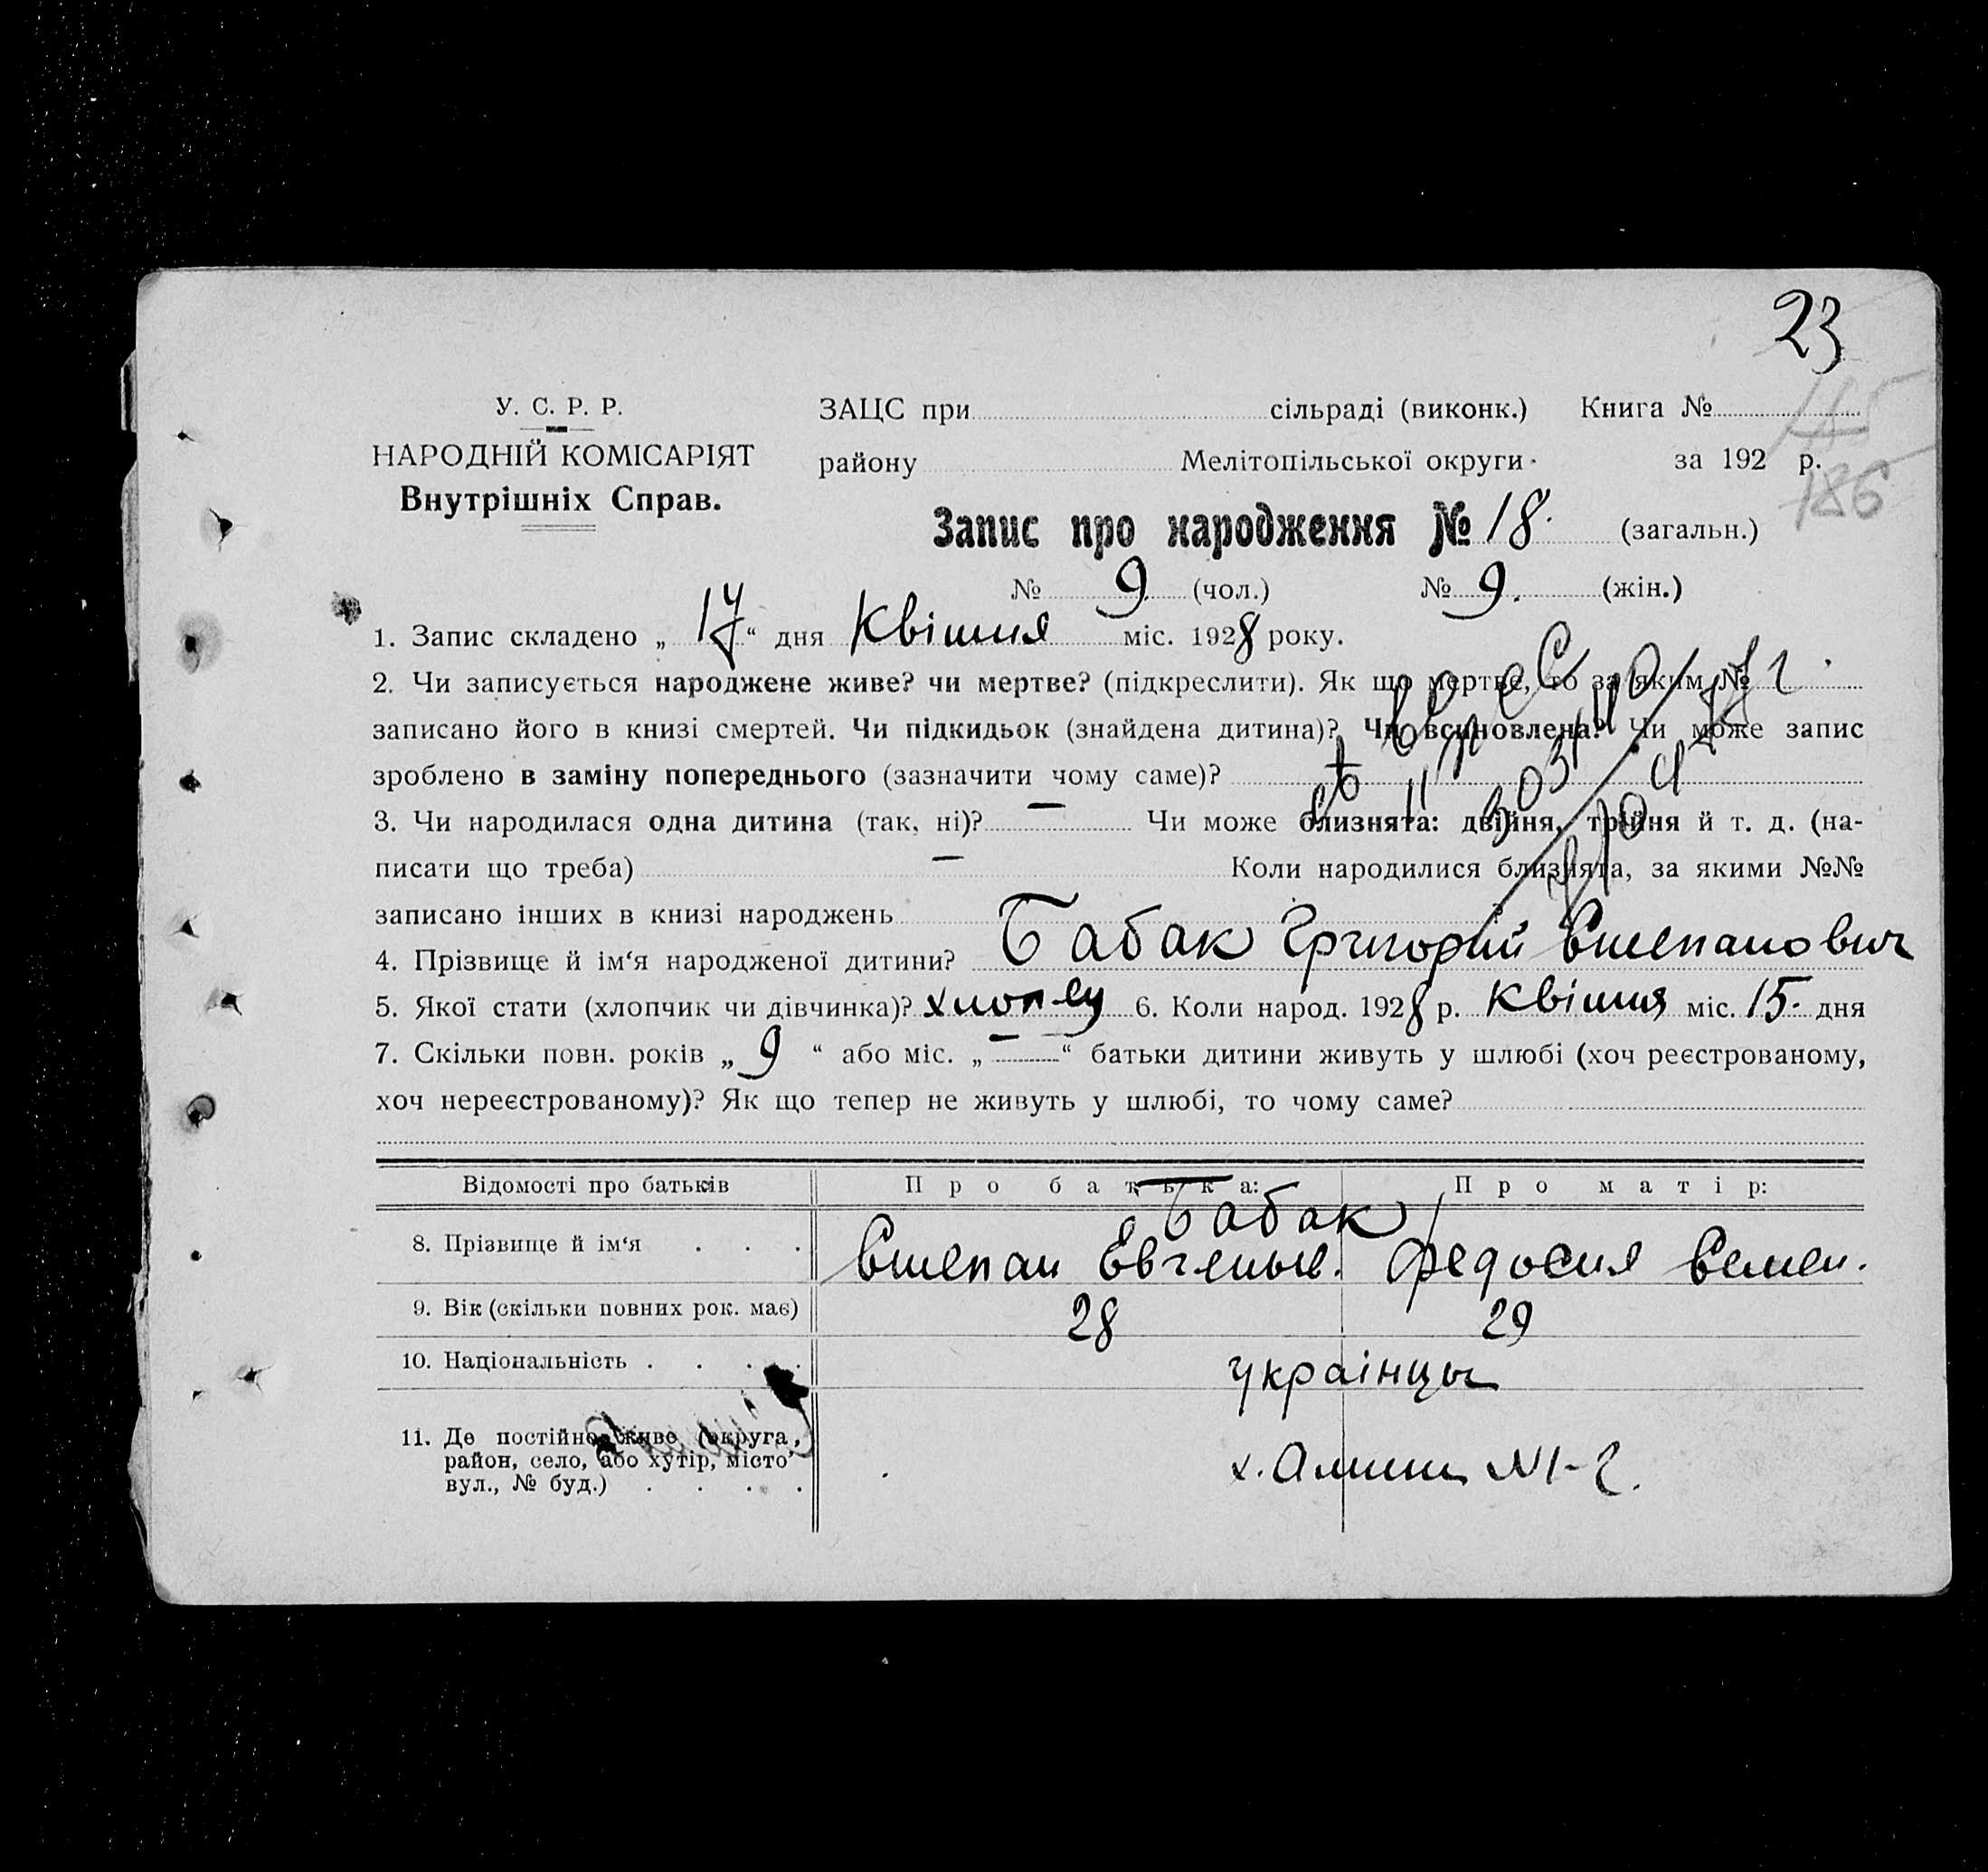 23
У. С. Р. Р.
НАРОДНІЙ КОМІСАРІЯТ
Внутрішніх Справ.
ЗАЦС при сільраді (виконк.) Книга №
району Мелітопільської округи за 192 р.
186
Запис про народження № 18. (загальн.)
№ 9 (чол.) № 9. (жін.)
1. Запис складено „17“ дня Квітня міс. 1928 року.
2. Чи записується народжене живе? чи мертве? (підкреслити). Як що мертве, то за яким №
записано його в книзі смертей. Чи підкидьок (знайдена дитина)? Чи всиновлена? Чи може запис
зроблено в заміну попереднього (зазначити чому саме)?
3. Чи народилася одна дитина (так, ні)? — Чи може близнята: двійня, трійня й т. д. (на-
писати що треба) — Коли народилися близнята, за якими №№
записано інших в книзі народжень ?
4. Прізвище й ім‘я народженої дитини? Бабак Григорий Степанович
5. Якої стати (хлопчик чи дівчинка)? 6. Коли народ. 1928 р. Квітня міс. 15. дня
7. Скільки повн. років „9“ або міс. „—“ батьки дитини живуть у шлюбі (хоч реєстрованому,
хоч нереєстрованому)? Як що тепер не живуть у шлюбі, то чому саме?
Відомості про батьків Про батька: Про матір:
Бабак
8. Прізвище й ім‘я . . . Степан Федосия Семен.
9. Вік (скільки повних рок. має) 28 29
10. Національність . . . . украінцы
11. Де постійно живе (округа,
район, село, або хутір, місто
вул., № буд.) . . . . х. №1-